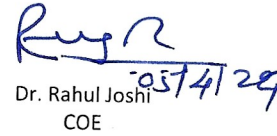 05/4/24
Dr. Rahul Joshi
COE